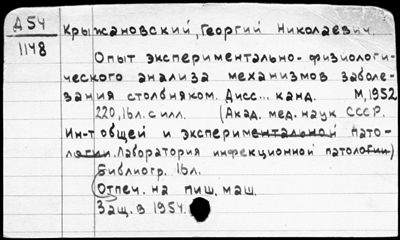 Д54
1148
Крыжановский, Георгий Николаевич.
Опыт экспериментально-физиологи-
ческого анализа механизмов заболе-
вания столбняком. Дисс... канд. М, 1952
220, 16л. с илл. (Акад. мед. наук СССР.
Ин-т общей и экспериментальной пато-
логии. Лаборатория инфекционной патологии)
Библиогр. 16л.
Отпеч. на пиш. маш.
Защ. в 1954.